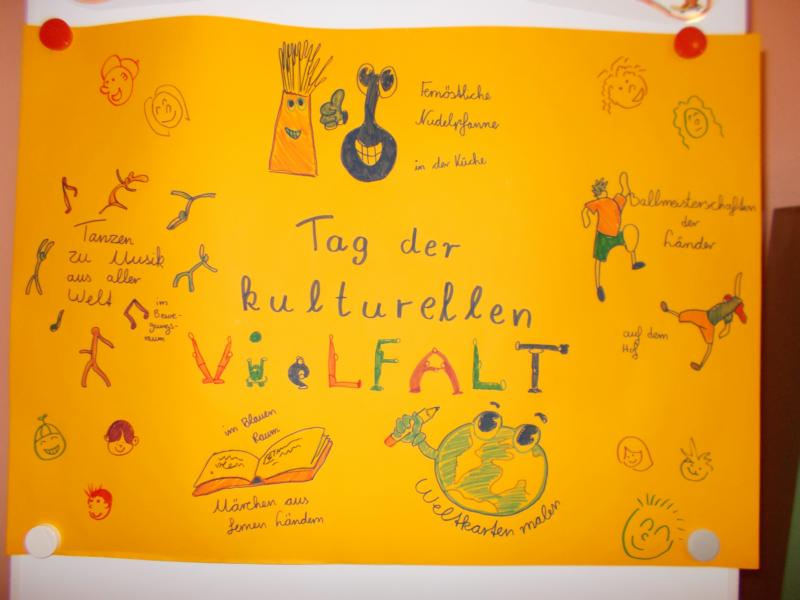 Fernöstliche
Nudelpfanne
in der Küche
Tanzen
zu Musik
aus aller
Welt
im
Bewe-
gungs-
raum
Ballmeisterschaften
der
Länder
auf dem
Hof
Tag der
kulturellen
VieLFALT
im Blauen
Raum
Märchen aus
fernen Ländern
Weltkarten malen